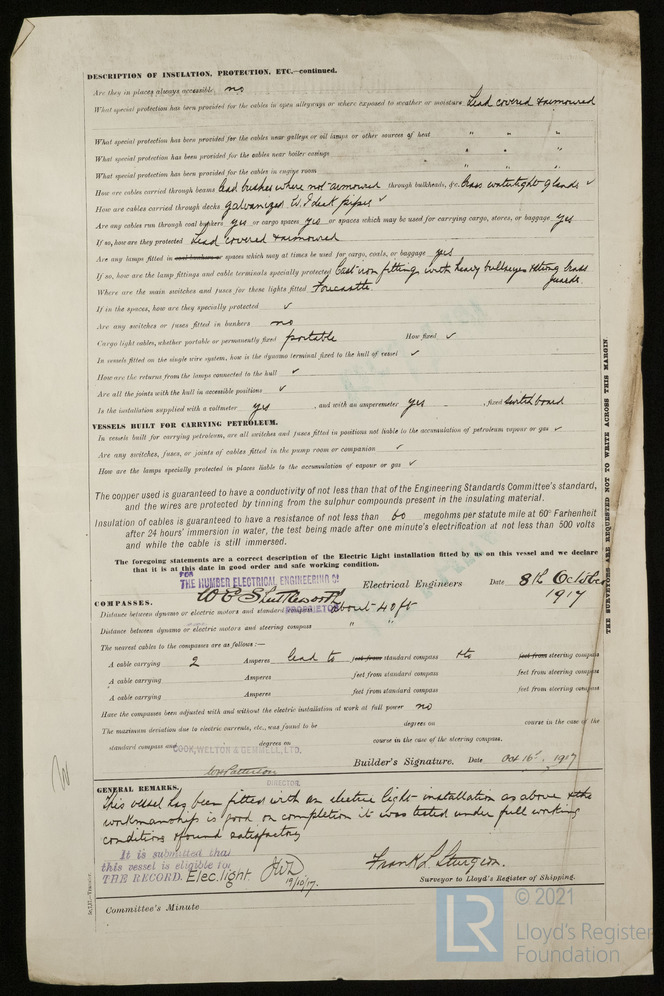 DESCRIPTION OF INSULATION, PROTECTION, ETC.—continued.
Are they in places always accessible no
What special protection has been provided for the cables in open alleyways or where exposed to weather or moisture Lead covered & armoured
What special protection has been provided for the cables near galleys or oil lamps or other sources of heat " " "
What special protection has been provided for the cables near boiler casings " " "
What special protection has been provided for the cables in engine room " " "
How are cables carried through beams lead bushes where not armoured through bulkheads, &c. brass watertight glands ✓
How are cables carried through decks galvanized W. I deck pipes ✓
Are any cables run through coal bunkers yes or cargo spaces yes or spaces which may be used for carrying cargo, stores, or baggage yes
If so, how are they protected Lead covered & armoured
Are any lamps fitted in coal bunkers or spaces which may at times be used for cargo, coals, or baggage yes
If so, how are the lamp fittings and cable terminals specially protected Cast iron fittings with heavy bullseyes & strong brass
guards.
Where are the main switches and fuses for these lights fitted Forecastle.
If in the spaces, how are they specially protected ✓
Are any switches or fuses fitted in bunkers no
Cargo light cables, whether portable or permanently fixed portable How fixed ✓
In vessels fitted on the single wire system, how is the dynamo terminal fixed to the hull of vessel ✓
How are the returns from the lamps connected to the hull ✓
Are all the joints with the hull in accessible positions ✓
Is the installation supplied with a voltmeter yes , and with an amperemeter yes , fixed Switchboard
VESSELS BUILT FOR CARRYING PETROLEUM.
In vessels built for carrying petroleum, are all switches and fuses fitted in positions not liable to the accumulation of petroleum vapour or gas ✓
Are any switches, fuses, or joints of cables fitted in the pump room or companion ✓
How are the lamps specially protected in places liable to the accumulation of vapour or gas ✓
The copper used is guaranteed to have a conductivity of not less than that of the Engineering Standards Committee's standard,
and the wires are protected by tinning from the sulphur compounds present in the insulating material.
Insulation of cables is guaranteed to have a resistance of not less than 60 megohms per statute mile at 60° Farhenheit
after 24 hours' immersion in water, the test being made after one minute's electrification at not less than 500 volts
and while the cable is still immersed.
The foregoing statements are a correct description of the Electric Light installation fitted by us on this vessel and we declare
that it is at this date in good order and safe working condition.
FOR
THE HUMBER ELECTRICAL ENGINEERING Co
W E Shuttleworth Electrical Engineers Date 8th October
1917
PROPRIETOR
COMPASSES.
Distance between dynamo or electric motors and standard compass about 40 ft
Distance between dynamo or electric motors and steering compass " "
The nearest cables to the compasses are as follows:—
A cable carrying 2 Amperes lead to feet from standard compass & to feet from steering compass
A cable carrying Amperes feet from standard compass feet from steering compass
A cable carrying Amperes feet from standard compass feet from steering compass
Have the compasses been adjusted with and without the electric installation at work at full power no
The maximum deviation due to electric currents, etc., was found to be degrees on course in the case of the
standard compass and degrees on course in the case of the steering compass.
COOK, WELTON & GEMMELL, LTD.
Builder's Signature. Date Oct 16th, 1917
DIRECTOR.
GENERAL REMARKS.
This vessel has been fitted with an electric light installation as above & the
workmanship is good on completion it was tested under full working
conditions & found satisfactory
It is submitted that
this vessel is eligible for
THE RECORD. Elec. light. JWD
19/10/17.
Frank L Sturgeon.
Surveyor to Lloyd's Register of Shipping.
Committee's Minute
THE SURVEYORS ARE REQUESTED NOT TO WRITE ACROSS THIS MARGIN.
LR
© 2021
Lloyd's Register
Foundation